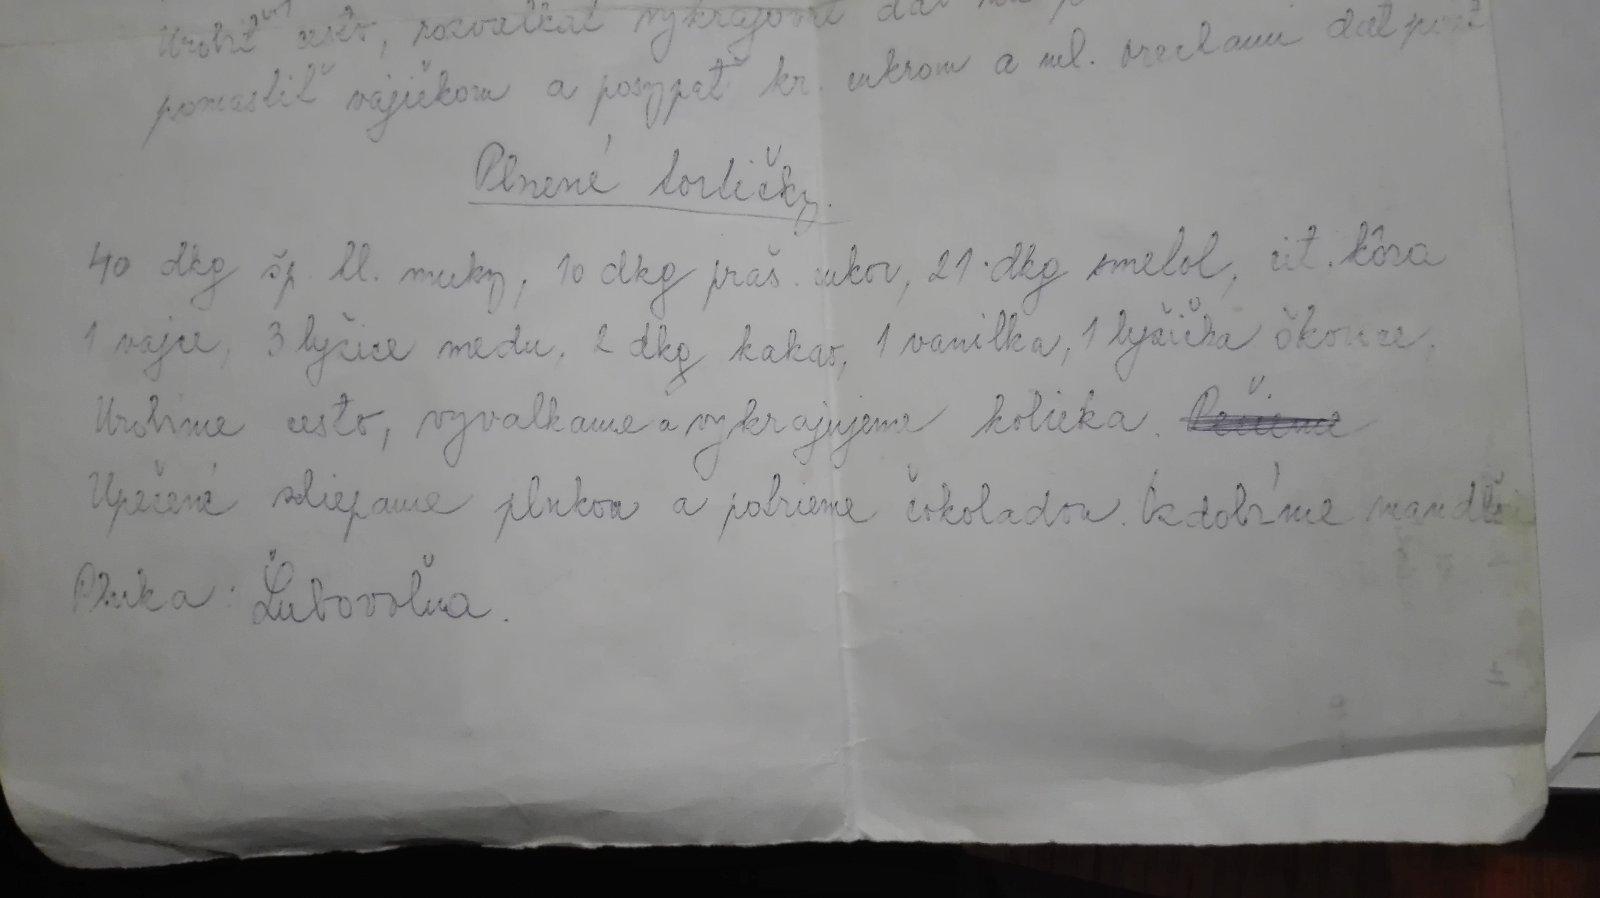 Urobiť cesto, rozvalkať vykrajovať dať
pomastiť vajíčkom a posypať kr. cukrom a ml. orechami dať piecť
Plnené tortičky.
40 dkg šp hl. muky, 10 dkg práš. cukor, 21 dkg smetol, cit. kôra
1 vajce, 3 lyžice medu, 2 dkg kakao, 1 vanilka, 1 lyžička škorice,
Urobíme cesto, vyvalkame a vykrajujeme kolieka.
Upečené zliepame plnkou a potrieme čokoladou. Ozdobíme mandľ
Plnka: Ľubovoľna.